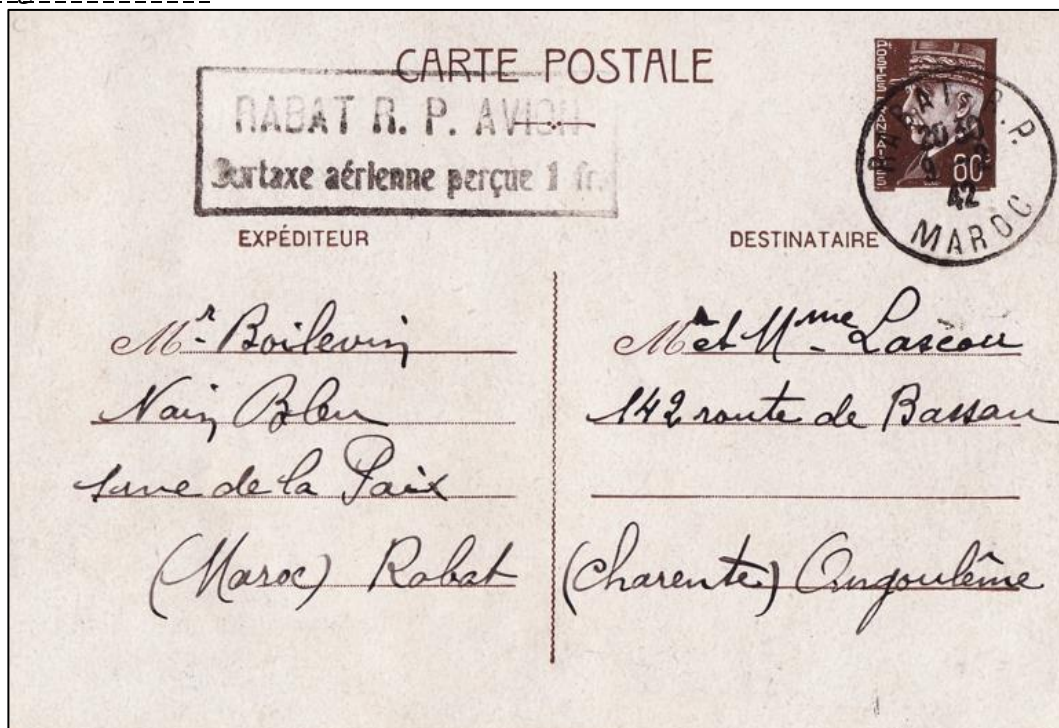 CARTE POSTALE
POSTES FRANÇAISES
80
RABAT R. P. AVION
Surtaxe aérienne perçue 1 fr.
RABAT R.P.
20 30
9
42
MAROC
EXPÉDITEUR
Mr. Boilevin
Nain Bleu
1 rue de la Paix
(Maroc) Rabat
DESTINATAIRE
Mr et Mme Lascou
142 route de Bassau
(Charente) Angoulême